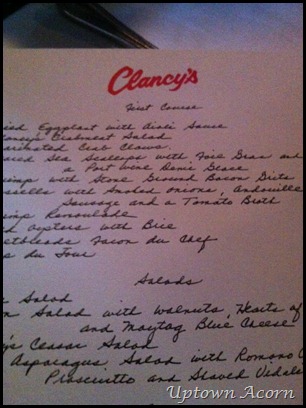 Clancy's
First Course
ied Eggplant with Aioli Sauce
lancy's Crabmeat Salad
arinated Crab Claws
ared Sea Scallops with Foie Gras and
a Port Wine Demi Glace
imp with Stone Ground Bacon Grits
ssells with Smoked onions, Andouille
Sausage and a Tomato Broth
imp Remoulade
ed Oysters with Brie
eetbreads Facon du Chef
s du Jour
Salads
e Salad
n Salad with Walnuts, Hearts of
and Maytag Blue Cheese
y's Ceasar Salad
Asparagus Salad with Romano C
Prosciutto and Shaved Vidali
Uptown Acorn